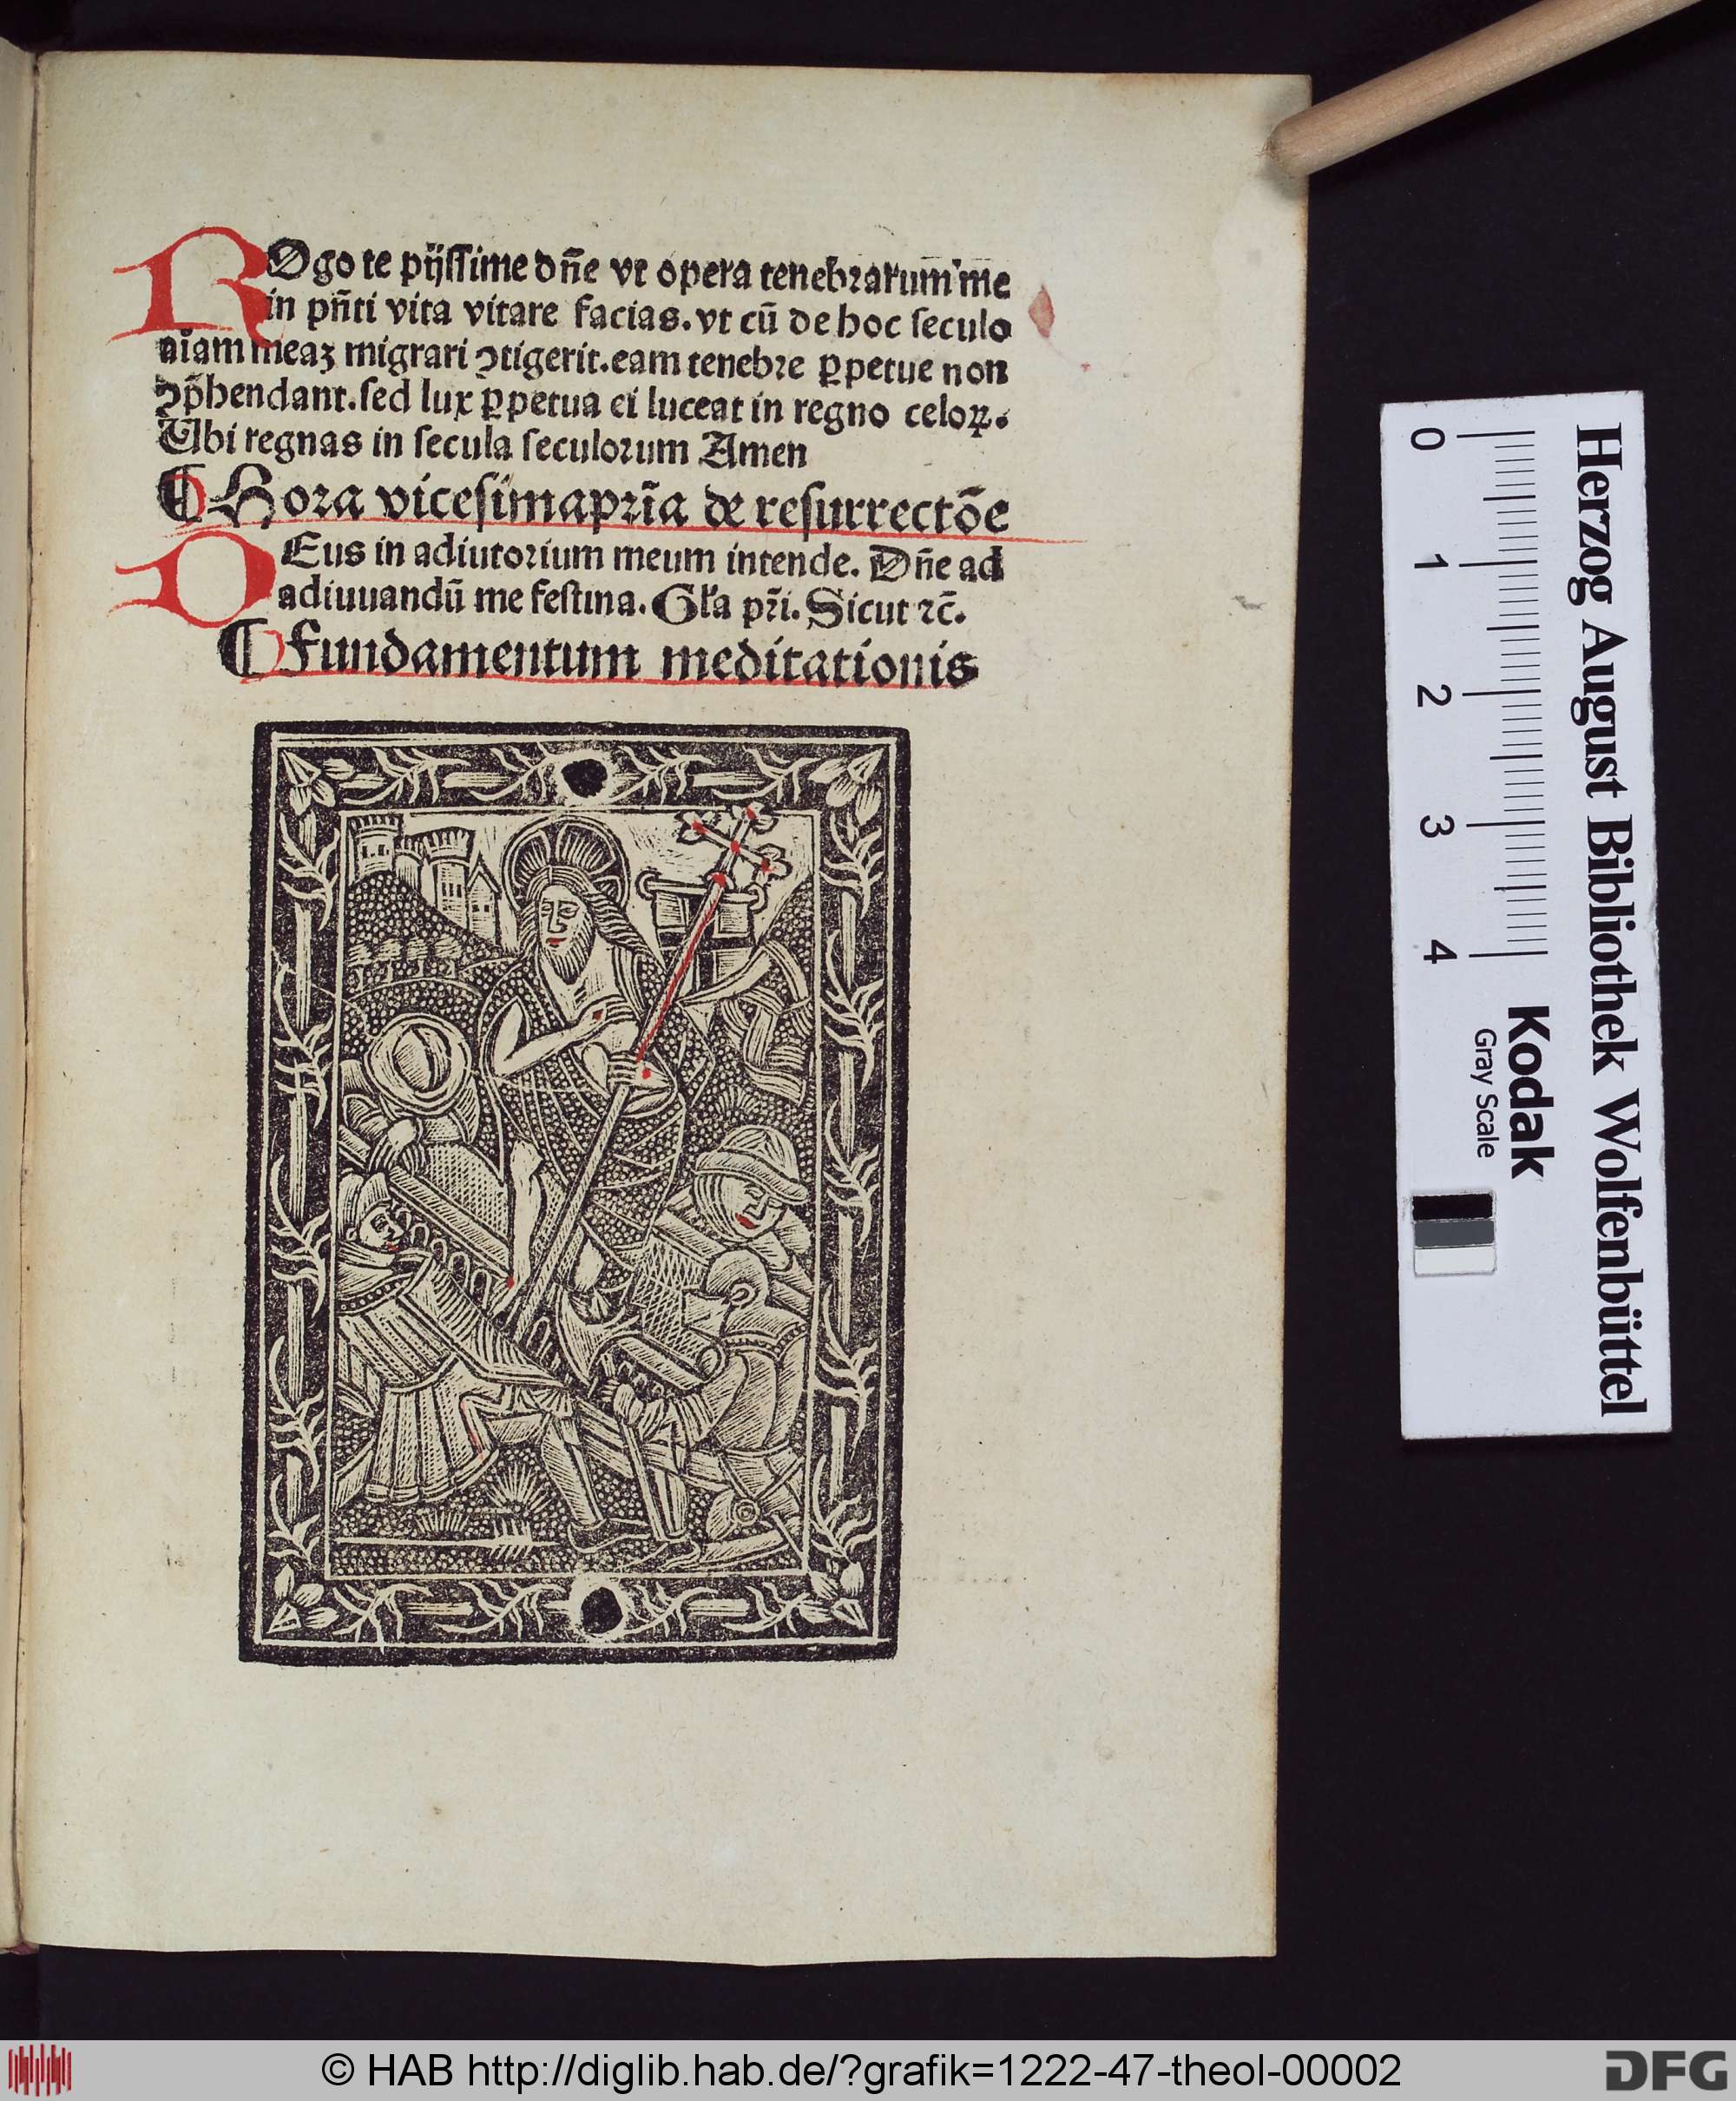 ROgo te pijssime dn̄e vt opera tenebrarum me
in pn̄ti vita vitare facias. vt cū de hoc seculo
aīam meaꝫ migrari ↄtigerit. eam tenebre ꝑpetue non
ↄp̄hendant. sed lux ꝑpetua ei luceat in regno celoꝝ.
Ubi regnas in secula seculorum Amen
¶ Hora vicesimaprīa de resurrectōe
DEus in adiutorium meum intende. Dn̄e ad
adiuuandū me festina. Gła pr̄i. Sicut ⁊c̄.
¶ Fundamentum meditationis
0 1 2 3 4
Kodak
Gray Scale
Herzog August Bibliothek Wolfenbüttel
© HAB http://diglib.hab.de/?grafik=1222-47-theol-00002
DFG